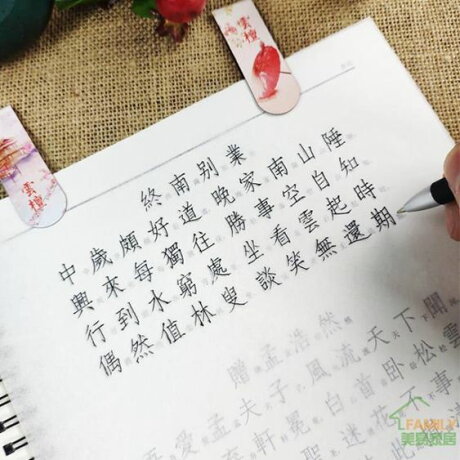 雲檀
雲檀
終南别業
中歲頗好道晚家南山陲
興來每獨往勝事空自知
行到水窮處坐看雲起時
偶然值林叟談笑無還期
贈孟浩然
吾愛孟夫子風流天下聞
棄軒冕白首卧松雲
聖迷花不事
此
FAMILY